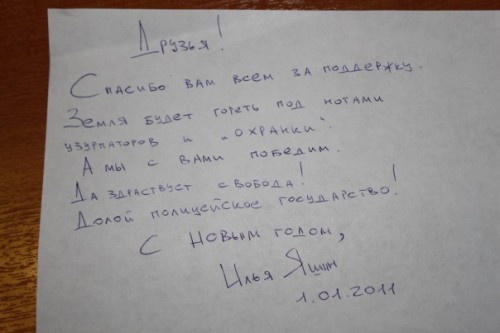 Друзья!
Спасибо вам всем за поддержку.
Земля будет гореть под нотами
узурпаторов и „охранки".
А мы с вами победим.
Да здраствует свобода!
Долой полицейское государство!
С Новым годом,
Илья Яшин
1.01.2011